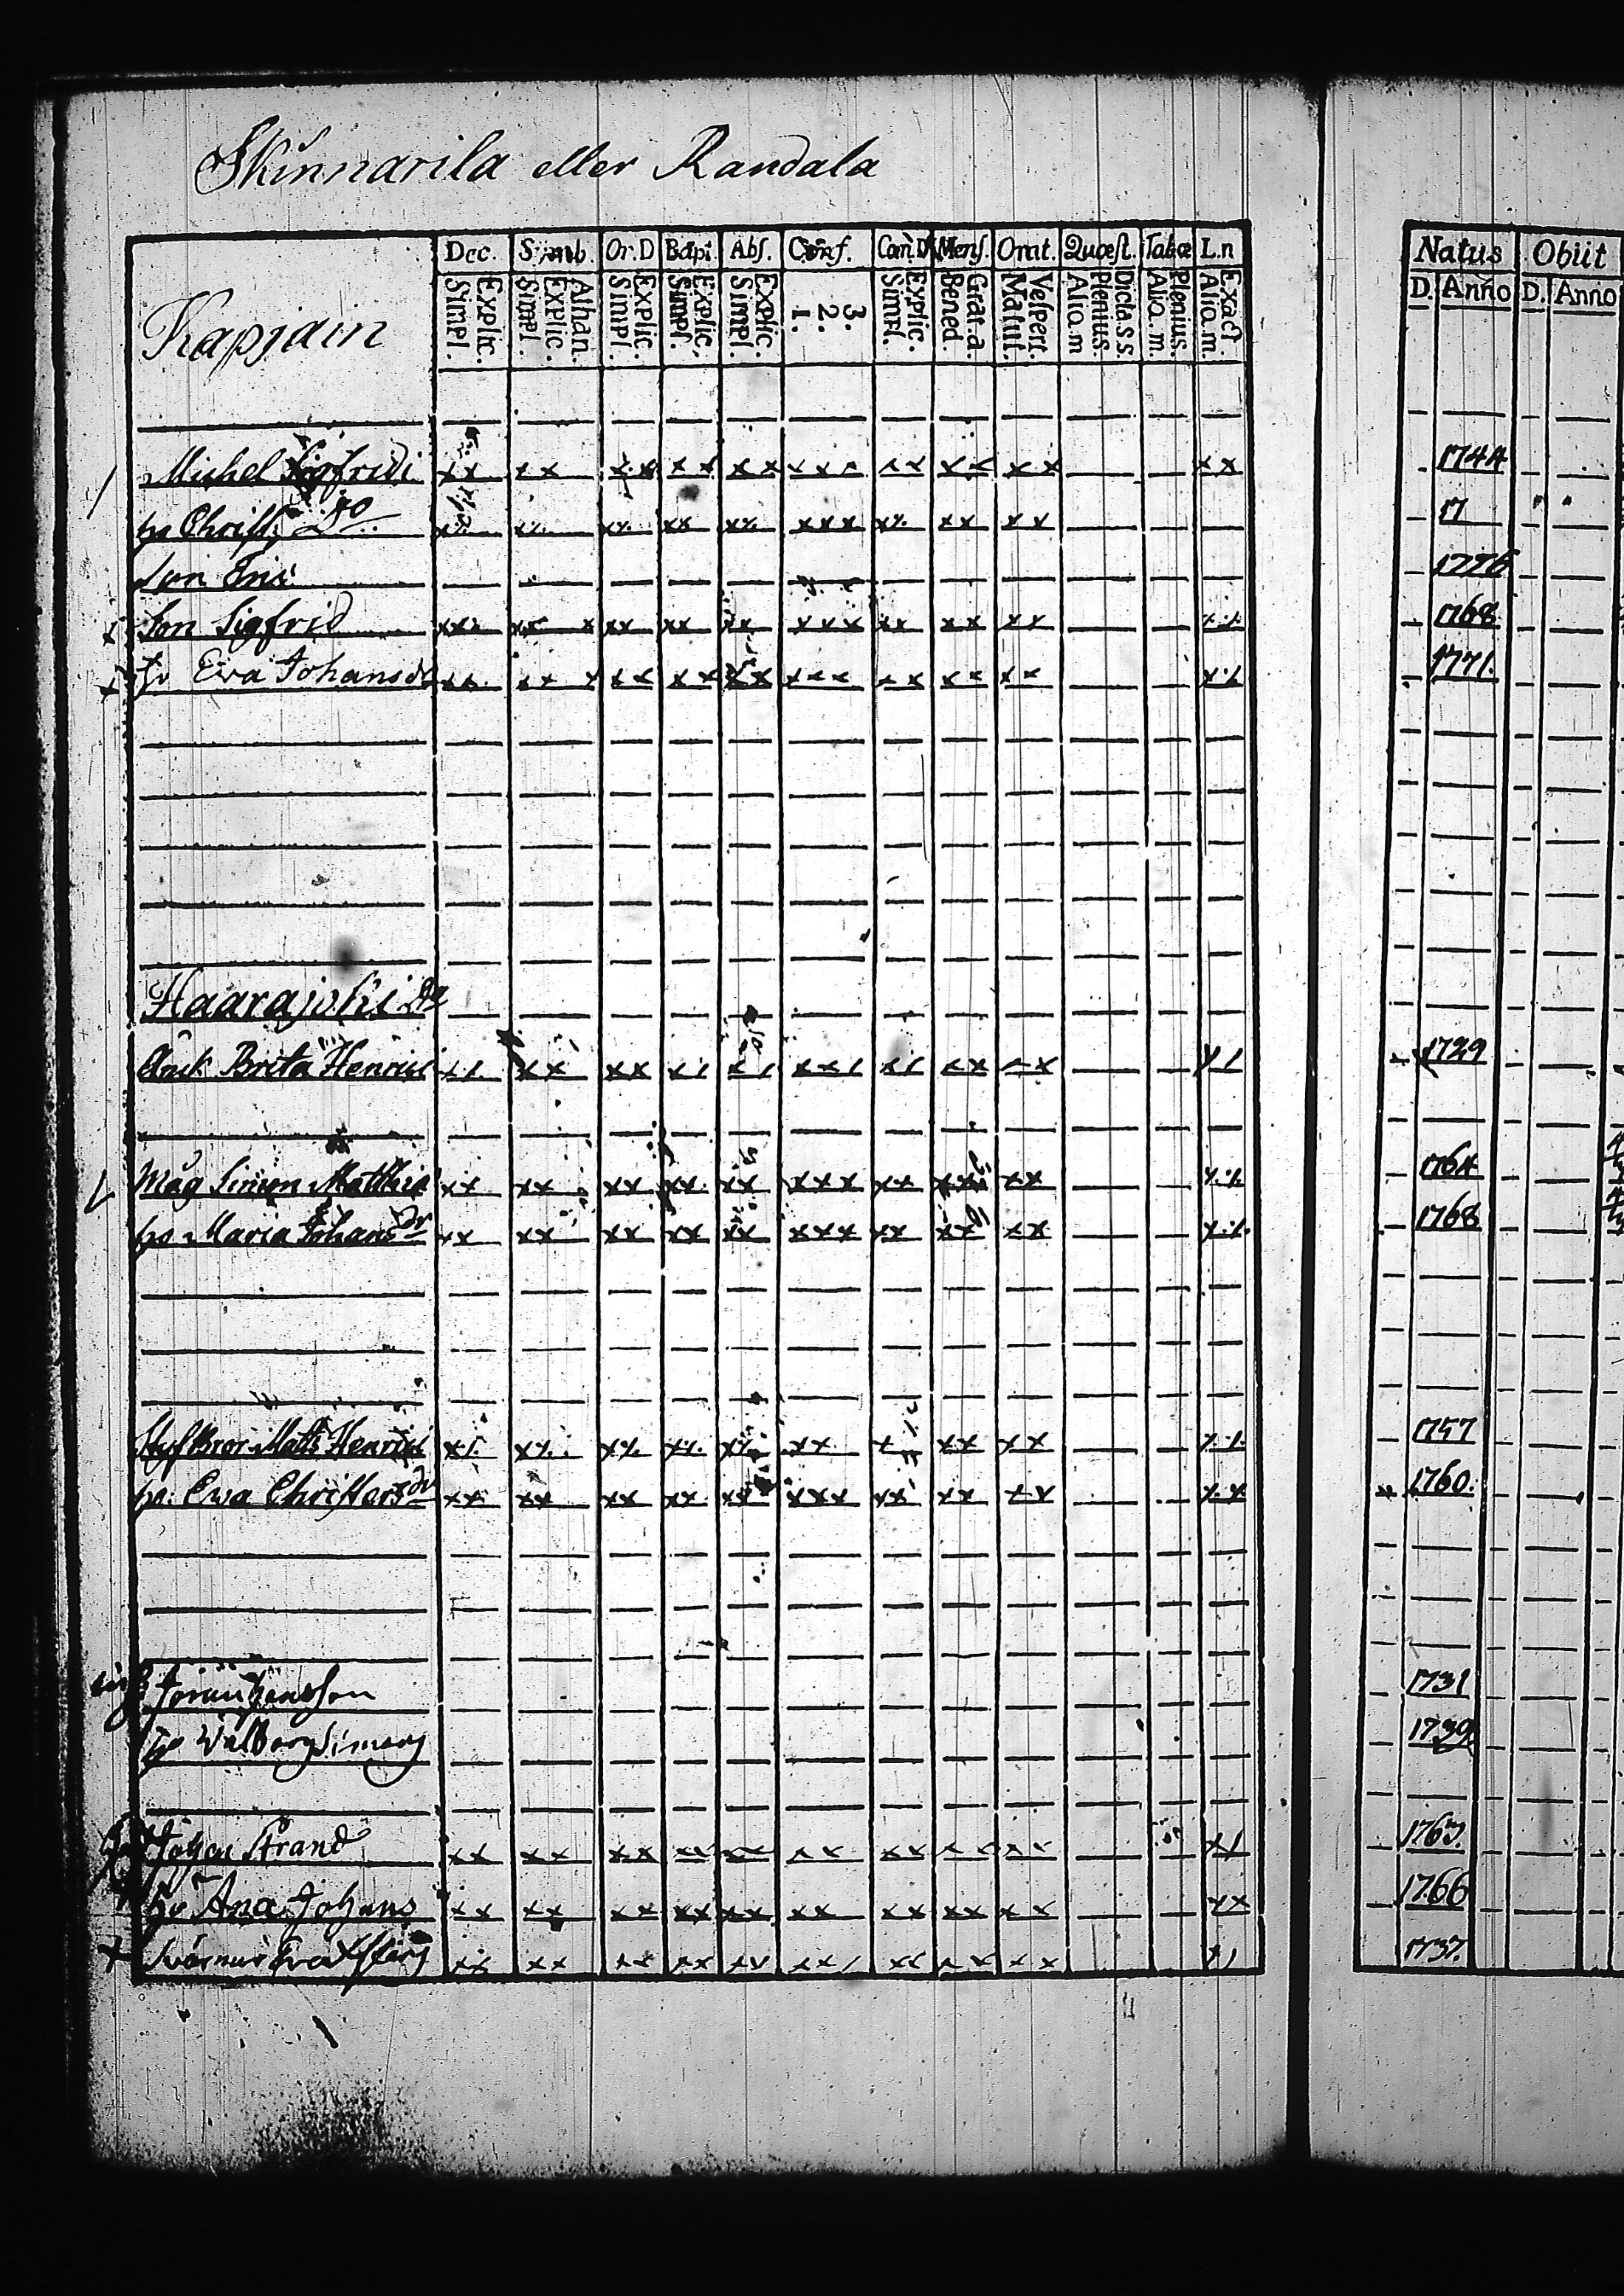 Skinnarila eller Randala
Dec. Simb. Or.D Bapt. Abs. Conf. Cœn.D Mens. Orat. Quæst. Tabæ L.n Natus Obiit
Explic. Simpl. Athan. Explic. Simpl. Explic. Simpl. Explic. Simpl. Explic. Simpl. 3. 2. 1. Explic. Simpl. Grat.a. Bened. Vespert. Matut. Dicta.s.s. Plenius. Aliq.m Plenius. Aliq.m. Exact. Aliq.m. D. Anno D. Anno
Kapjain
Michel Sigfridi xx xx xx xx xx xxx xx xx xx xx 1744
hu Christ: x% x% x% xx x% xxx x% xx xx 17
Son 1776
Son Sigfrid xxx xx x xx xx xx xxx xx xx xx 1768
hu Eva Johansdr xx xx x xx xx xx xxx xx xx xx 1771.
Haarajoki
Enk Brita Henrici xx xx xx 1729
Måg Simon Matthiæ xx xx xx xx xx xxx xx xx xx 1764
hu Maria Johansdr xx xx xx xx xx xxx xx xx xx 1768
Matts Henrici x% x% xx xx xx 1757
hu. Eva Christersdr xx xx xx xx xx xxx xx xx xx xx 1760.
1731
hu Walborg Simons 1739
Johan Strand xx xx xx xx xx xx xx xx xx 1767.
hu Ana Johans xx xx xx xx xx xx xx xx xx xx 1766
Svärmor Eva xx xx xx xx xx xx xx xx 1737.